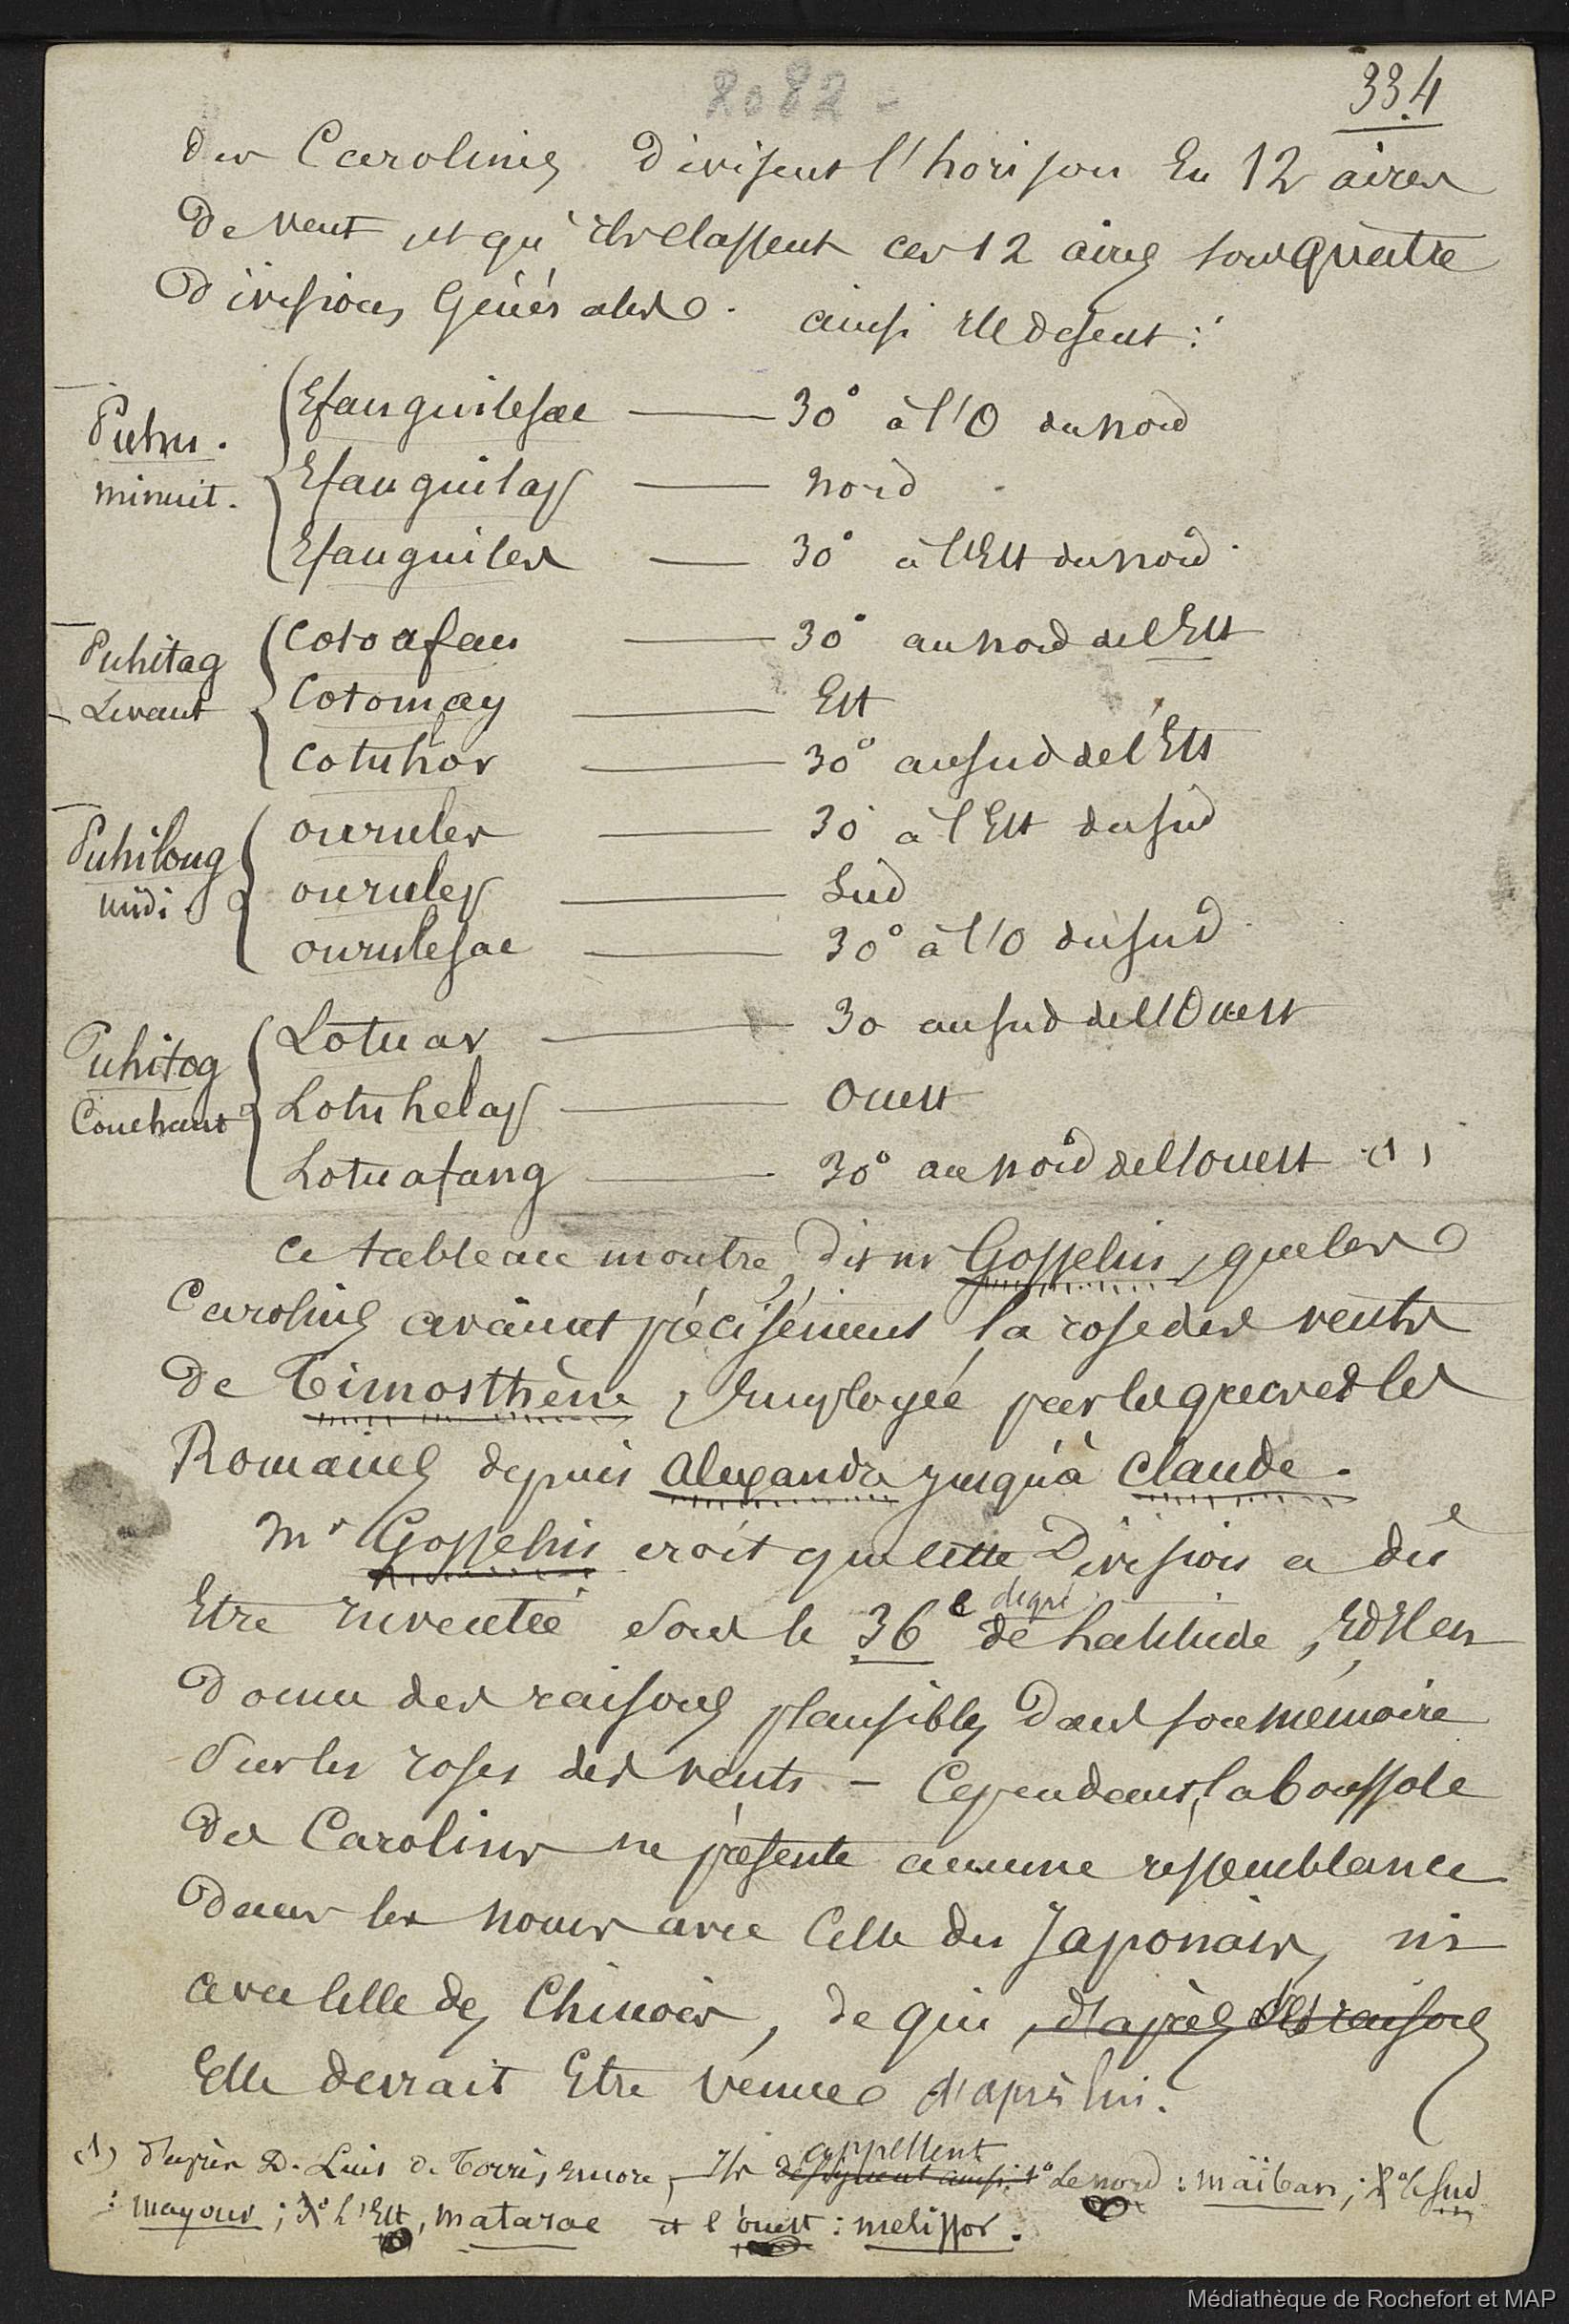 2082 -
334
des Carolines divisent l'horison en 12 aires
de vent et qu'ils classent ces 12 aires sous quatre
divisions générales. ainsi ils disent :
Puhu. minuit.
Efanguilesae — 30° à l'O du nord
Efanguilap — nord
Efanguiler — 30° à l'Est du nord.
Puhitag Levant
Cotoafan — 30° au nord de l'Est
Cotomay — Est
Cotuhor — 30° au sud de l'Est
Puhiloug midi.
ouruler — 30 à l'Est du sud
ourulep — Sud
ourulesae — 30° à l'O du sud
Puhitog Couchant
Lotuar — 30 au sud de l'Ouest
Lotuhelap — Ouest
Lotuafang — 30° au nord de l'ouest (1)
ce tableau montre, dit mr Gosselin, que les
Carolins avaient précisément la rose des vents
de Timosthène, employée par les grecs et les
Romains depuis alexandre jusqu'à Claude.
Mr Gosselin croit que cette Division a dû
Etre inventée sous le 36e degré de latitude, et il en
donne des raisons plausibles dans son mémoire
Sur les roses des vents - Cependant, la boussole
des Carolins ne présente aucune ressemblance
dans les noms avec Celle des Japonais, ni
avec celle des Chinois, de qui, d'après ses raisons
Elle devrait Etre venue d'après lui.
(1) d'après D. Luis de Torrès encore, Ils désignent ainsi appellent 1° Le nord : maïfan ; 2° le sud
: mayour ; 3° l'Est, matarae et l'ouest : melissor.
Médiathèque de Rochefort et MAP